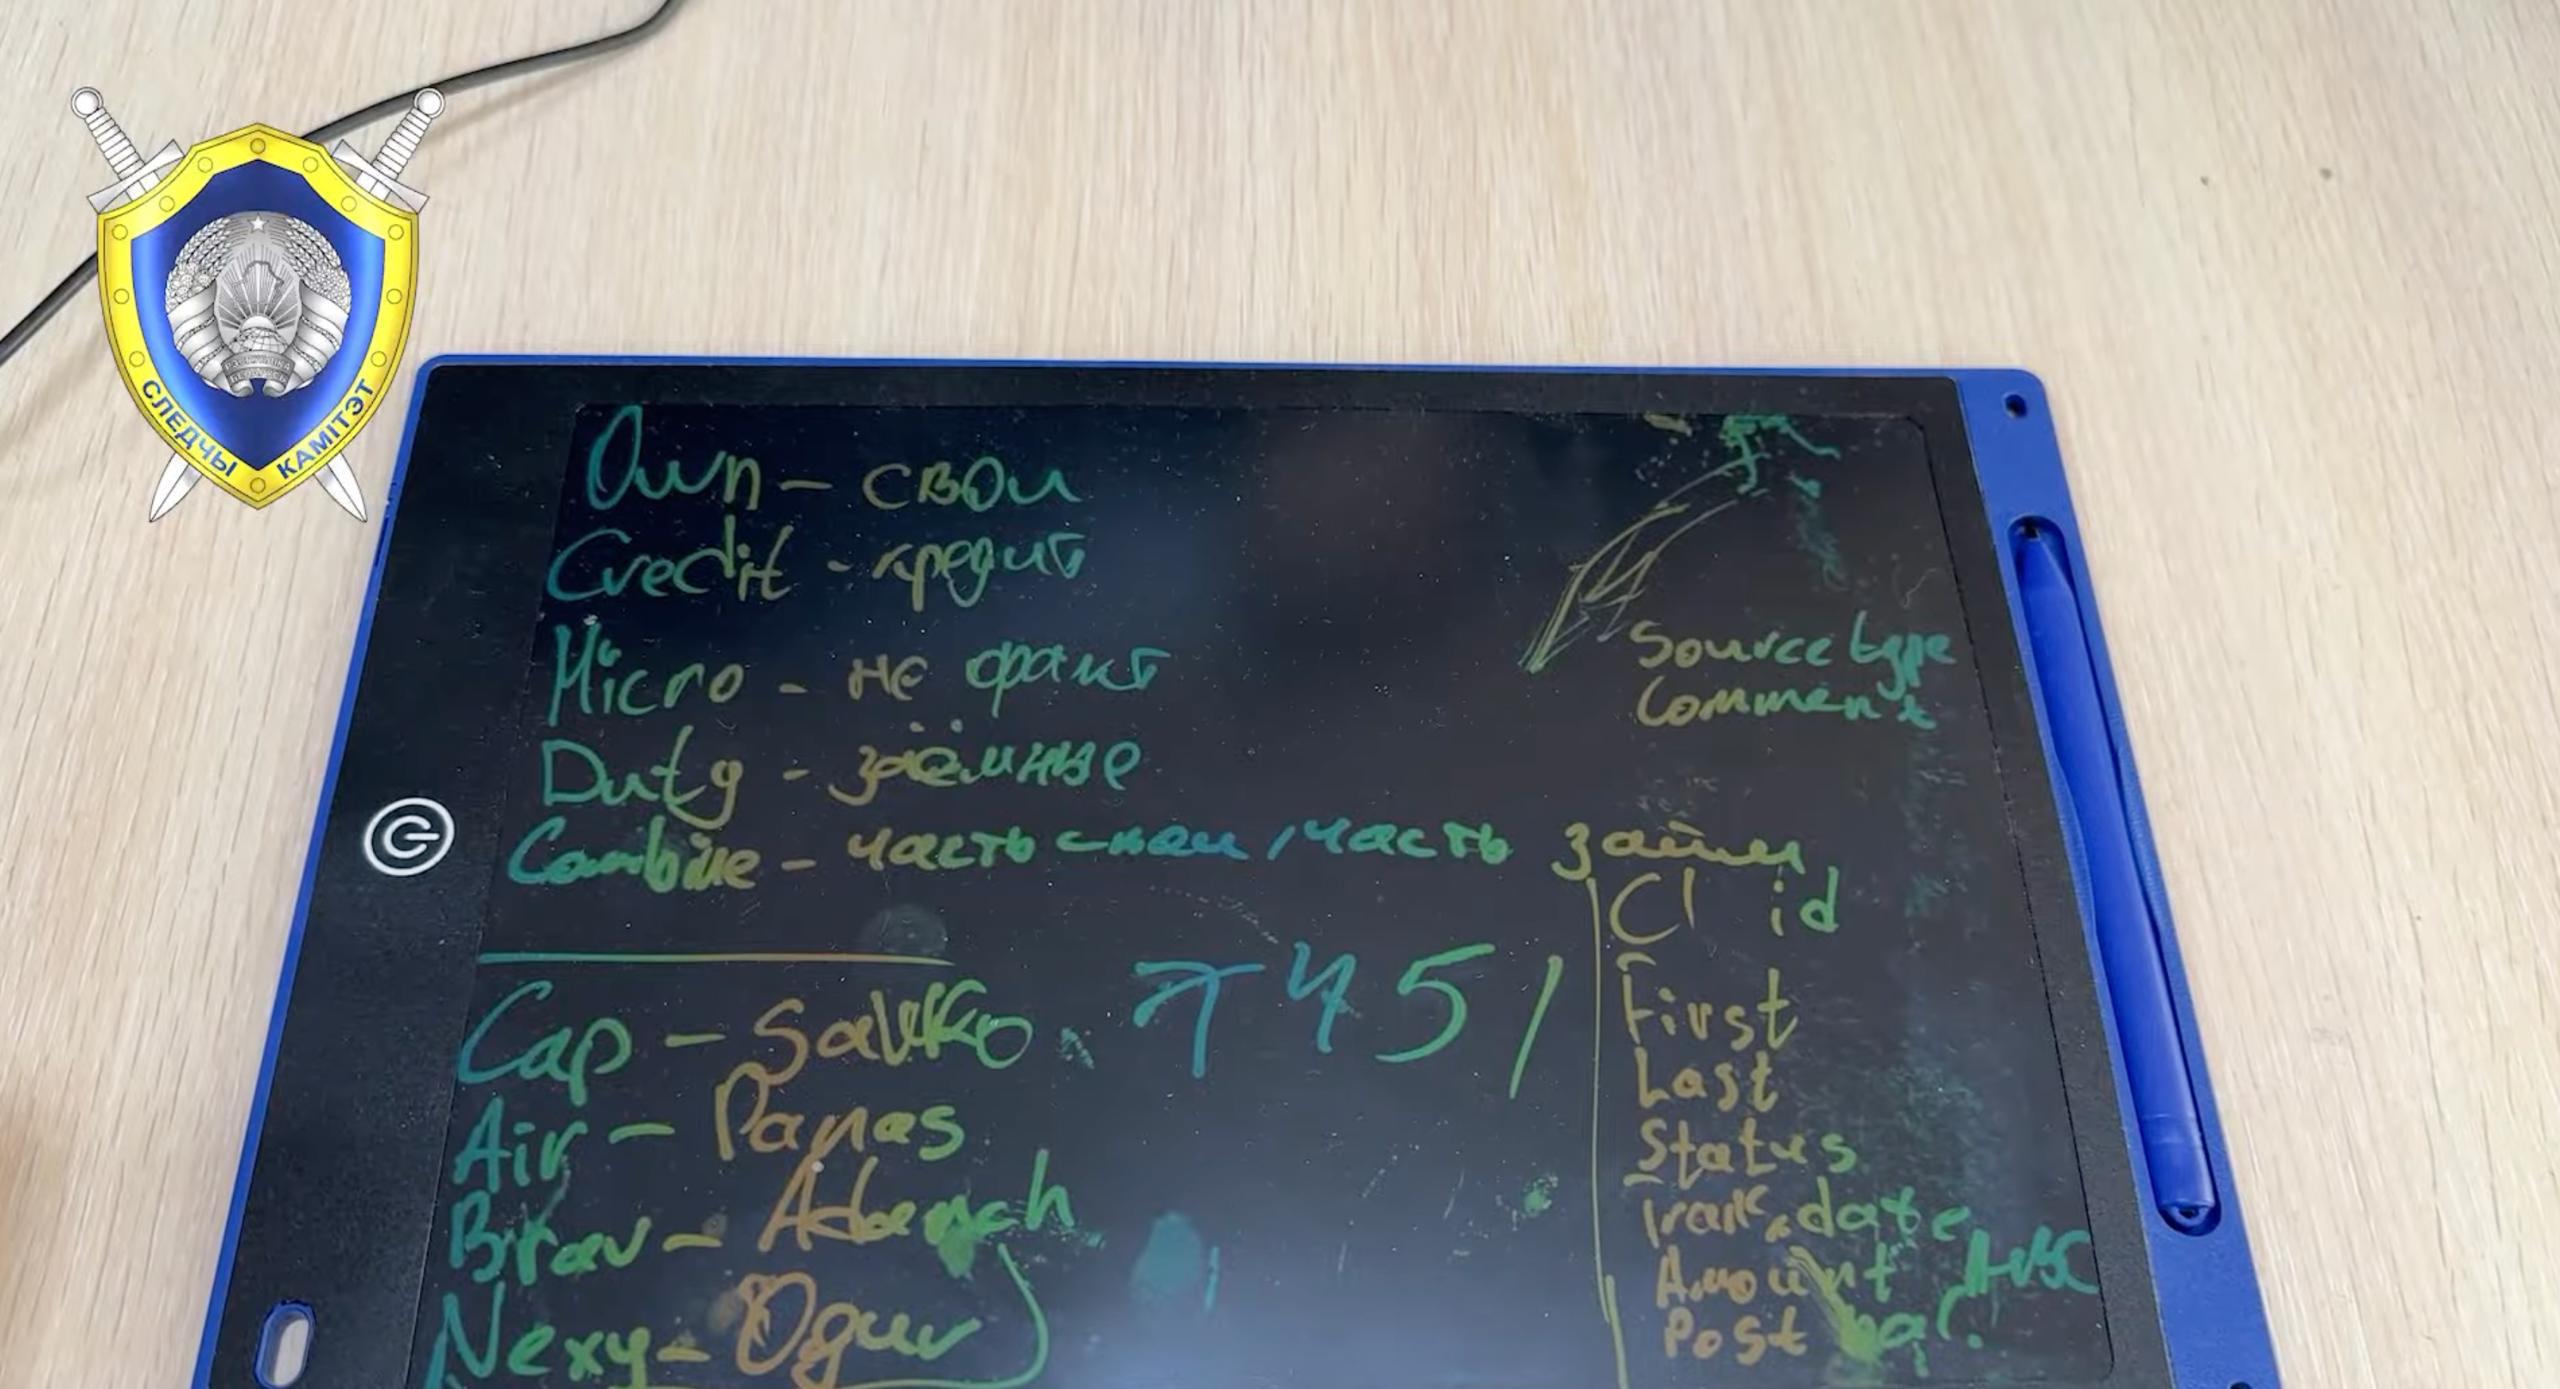 СЛЕДЧЫ КАМІТЭТ
Own - свои
Credit - кредит
Micro - не факт
Duty - заёмные
Combine - часть свои, часть займы
Source type
Comment
7451
Cap - Savko
Air - Panas
Brav -
Nexy - Ogur
Cl id
First
Last
Status
Trans. date
Amount
Post